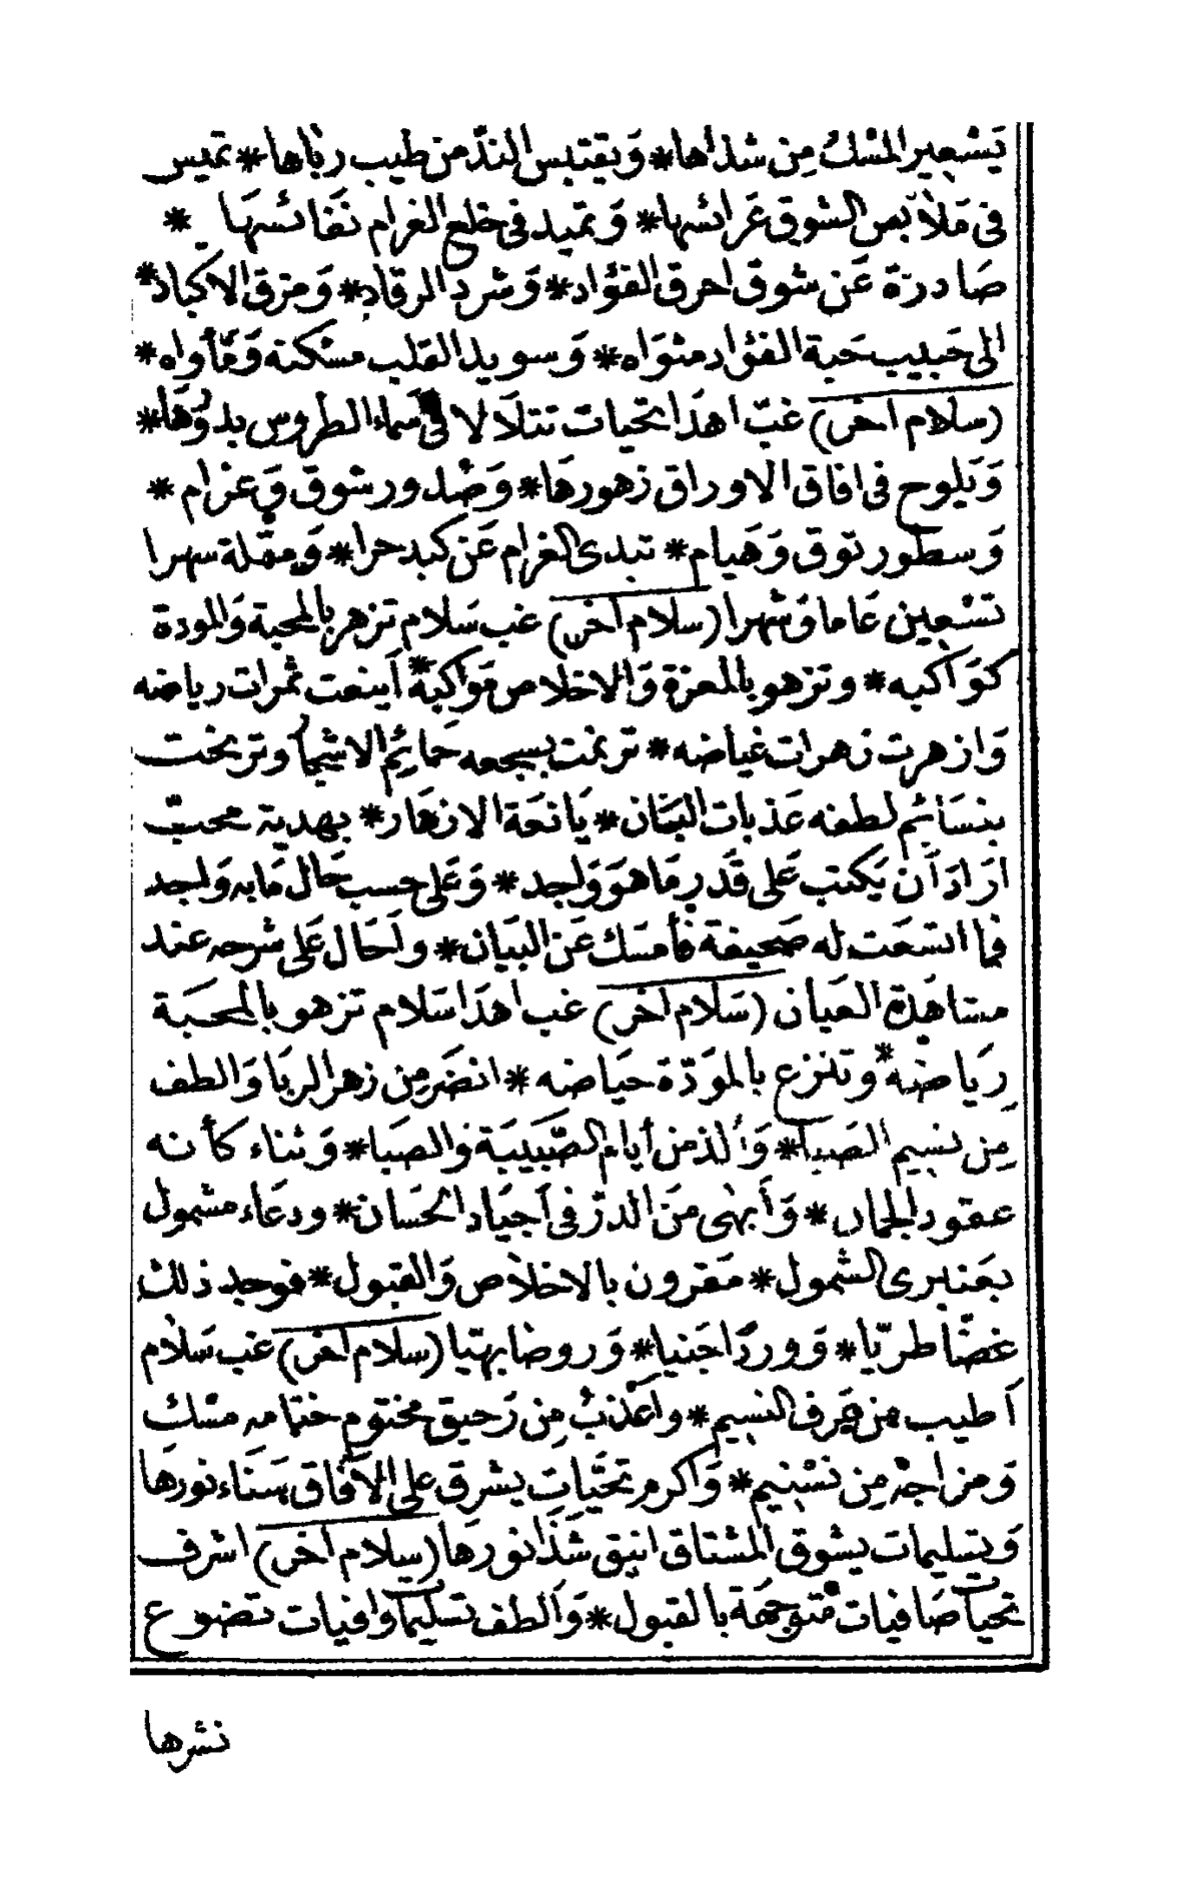 يَسْتعير المسْكُ مِن شذاها * وَيقتبس الندّ من طيب رياها * تميس
فى مَلابس الشوق عَرائسُها * وَتميد فى خلع الغرام نفَائسُهَا *
صَادرَة عَن شوق احرق الفؤاد * وَشرد الرقاد * وَمزق الاكباد *
الى حَبيب حَبة الفؤاد مثوَاه * وَسويد القلب مسْكنه وَمأواه *
(سلام اخر) غبّ اهدَا تحيات تتلَالا فى سماء الطروس بدُورُهَا *
وَيَلوح فى افاق الاوراق زهورهَا * وَصْدور شوق وَغرام *
وَسطور توق وَهيام * تبدى الغرام عَن كبد حرا * وَمقلة سهرا
تسْعين عَاما وَشهرا (سلام اخر) غب سَلام تزهر بالمحبة وَالمودة
كوَاكبه * وتزهو بالمعزة وَالاخلاص مَوَاكبَهُ * أينعت ثمرات رياضه
وَازهرت زهرات غياضه * ترنمت بسجعه حَمائِم الاشجار وترنحت
بنسَائم لطفه عَذبات البَنان * يَانعَة الازهَار * بهدية محبّ
ارَادَ أن يَكتب عَلى قَدَرِ مَا هوَ وَاجد * وَعَلى حسب حَال مَا به وَاجد
فما اتسَعَت له صَحيفة فأمسَك عَن البيَان * واحَال عَلى شرحه عند
مشاهَدة العيان (سَلام اخر) غب اهدَا سَلام تزهو بالمحبَة
رِيَاضه * وتنزع بالموَدّة حيَاضه * انضَر مِن زهر الربَا وَالطف
مِن نسيم الصَبا * وَألذ من أيام الصّبيَبَة وَالصَبا * وَثناء كأنه
عقود الجمان * وَأبهى مَن الدرّ فى أجيَاد الحسَان * ودعَاء مشمول
بعَنبرى الشمول * مقرون بالاخلاص وَالقبول * فوجد ذلك
غضّا طريّا * وَوردًا جَنيا * وَروضا بهيّا (سلام اخر) غب سَلام
أطيب من عَرف النسيم * وأعْذبُ مِن رَحيق مختوم ختامه مسْك
وَمزاجْه مِن تسْنيم * وَاكرم تحيَّات يشرق على الآفاق سَنَاء نورهَا
وَتسليمات يشوق المشتاق انيق شَذَا نورهَا (سلام اخر) اشرف
تحيات صَافيات متوجهَة بالقبول * وَالطف تسليما وافيات تضوع
نشرها